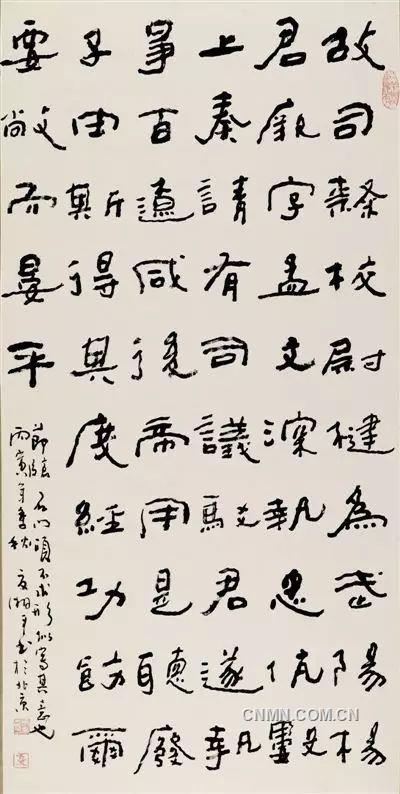 故司隸校尉楗為武陽楊
君厥字孟文深執忠伉數
上奏請有司議駮君遂執
爭百遼咸從帝用是聽廢
子由斯得其度經功飭爾
要敞而晏平
節臨石門頌不求形似寫其意也
丙寅年季秋夏湘平書於北京
CNMN.COM.CN